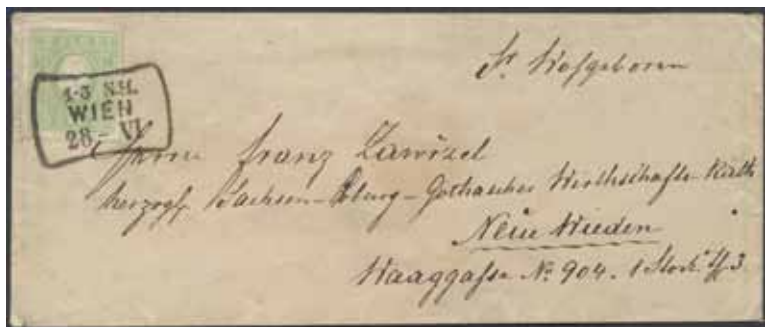 1-3 N.M.
WIEN
28 – VI
Sr. Wohlgeboren
Herrn Franz Zawizel
herzogl. Sachsen-Koburg-Gothascher Wirthschafts-Rath
Neue Wieden
Waaggasse No. 904. 1 Stock 3